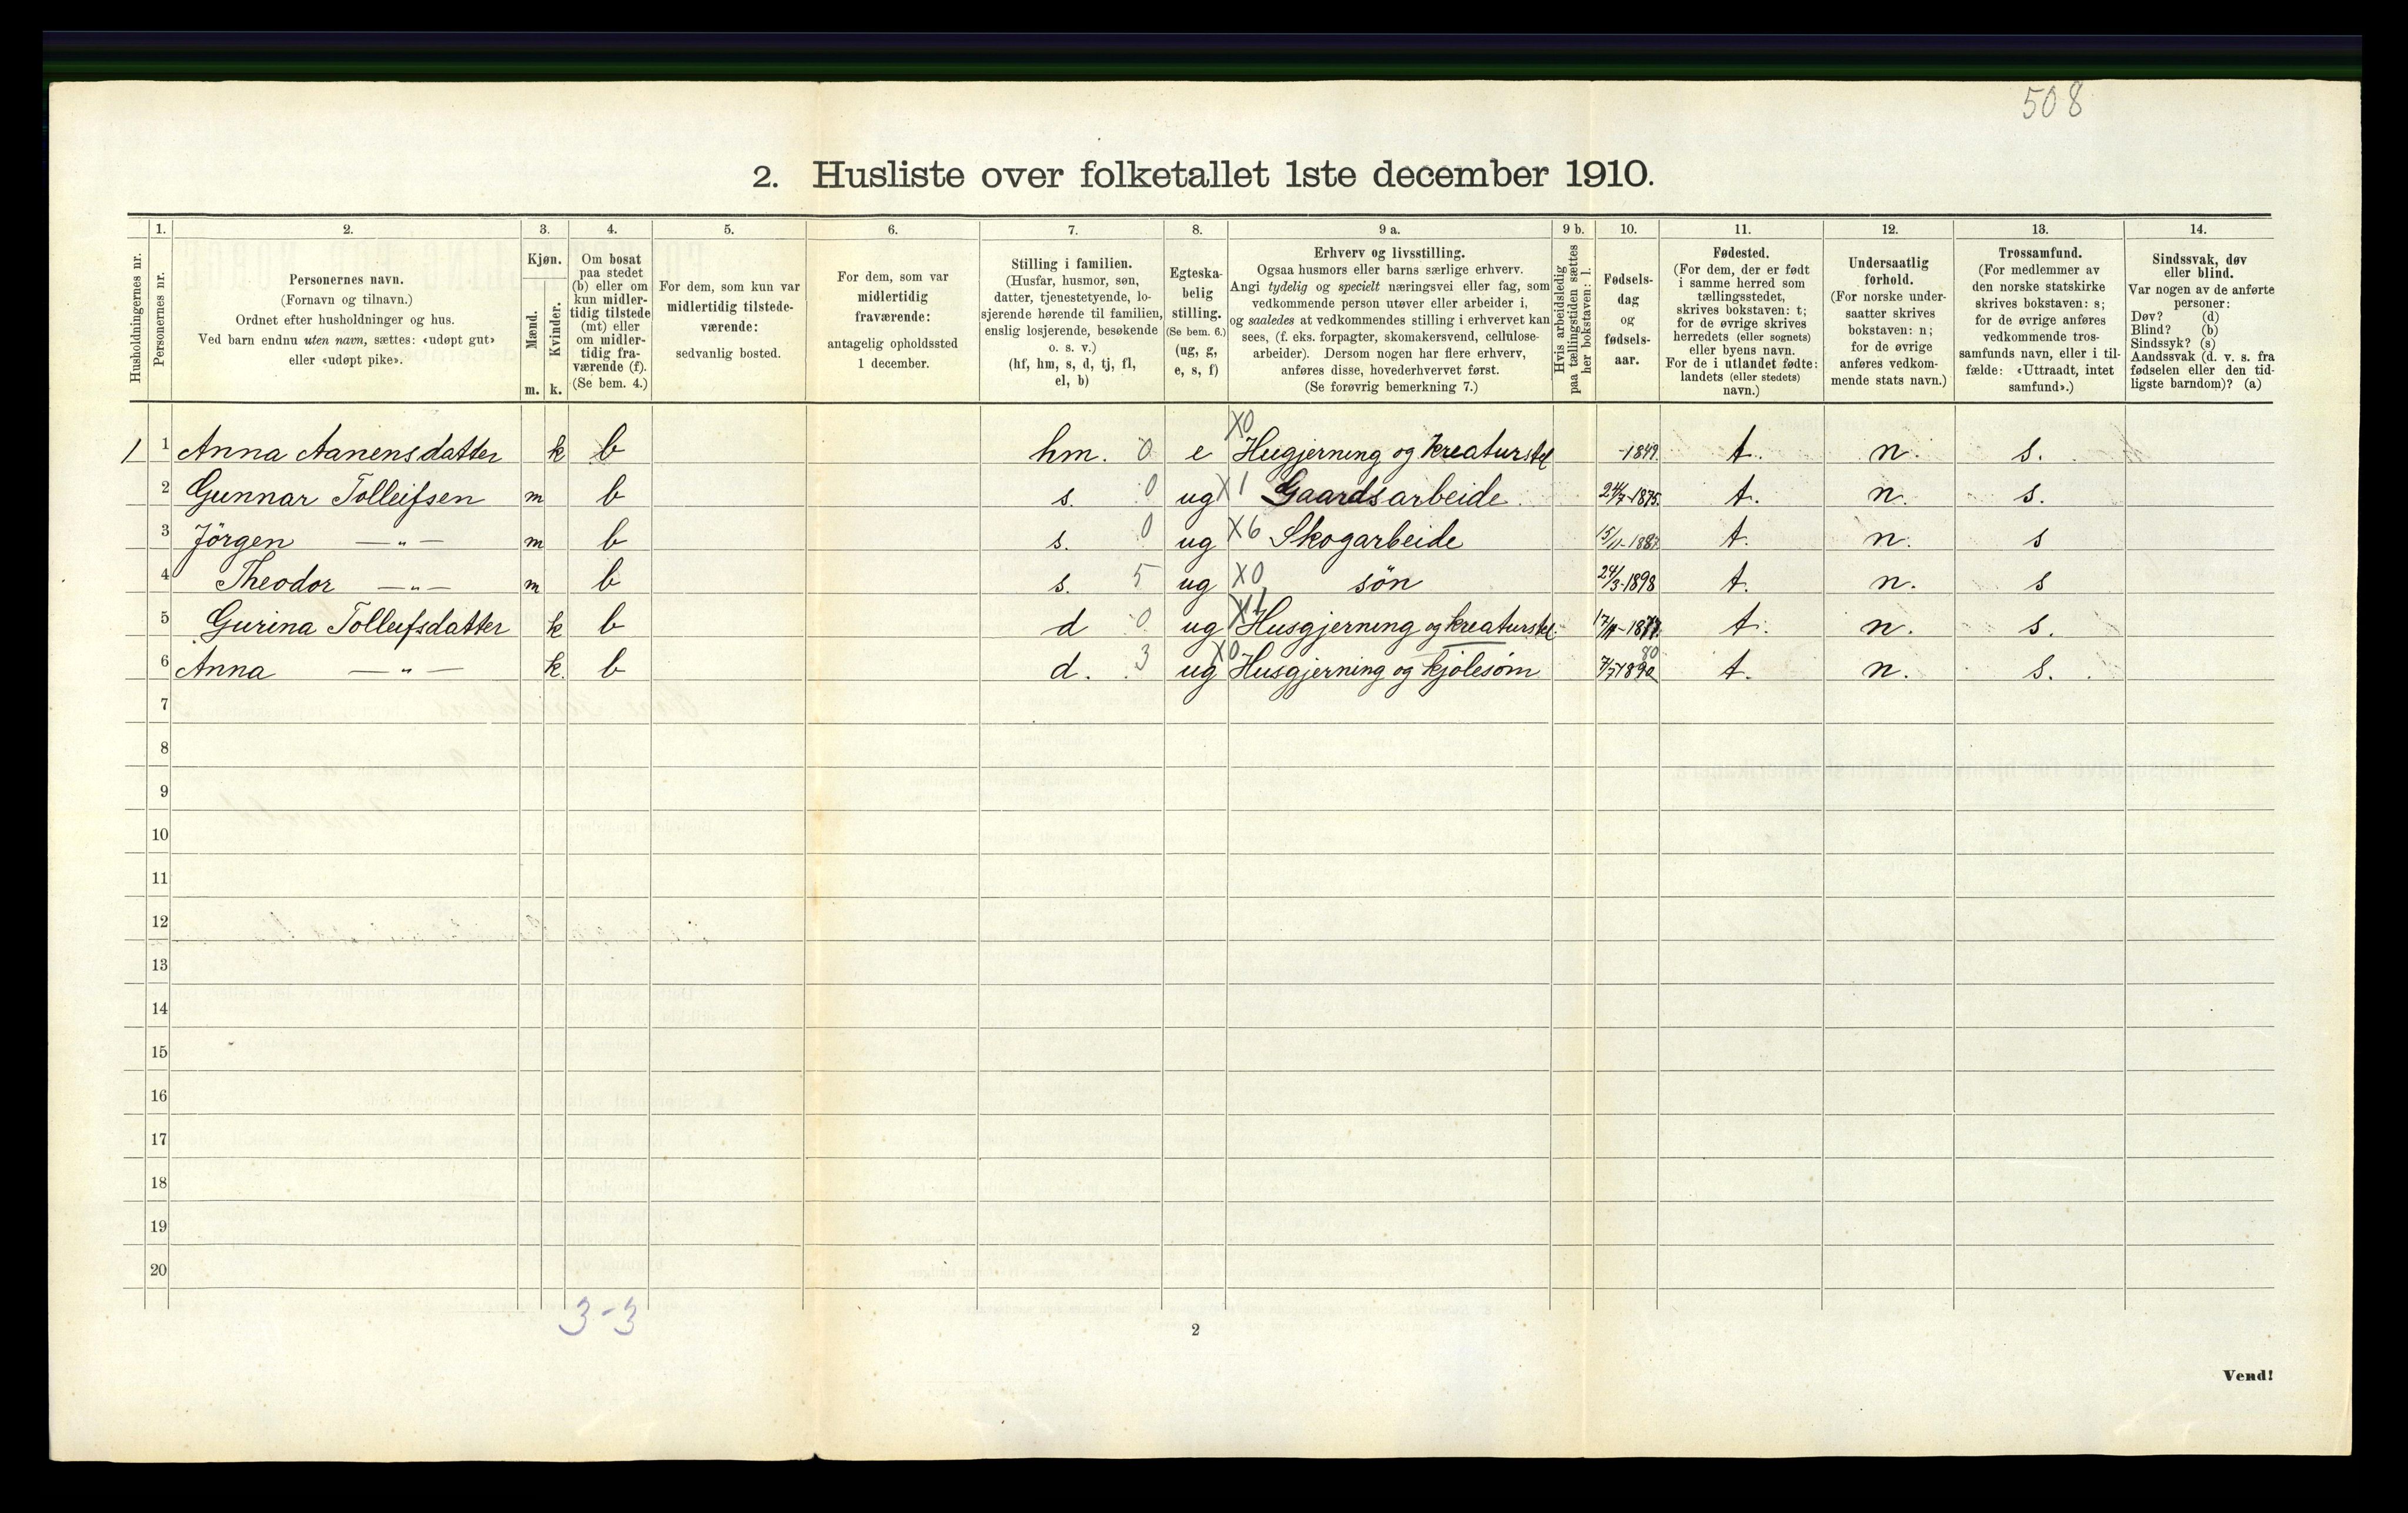 508
2. Husliste over folketallet 1ste december 1910.
Husholdningernes nr.
1. Personernes nr.
2. Personernes navn. (Fornavn og tilnavn.) Ordnet efter husholdninger og hus. Ved barn endnu uten navn, sættes: «udøpt gut» eller «udøpt pike».
3. Kjøn. Mænd. m. Kvinder. k.
4. Om bosat paa stedet (b) eller om kun midlertidig tilstede (mt) eller om midlertidig fraværende (f). (Se bem. 4.)
5. For dem, som kun var midlertidig tilstedeværende: sedvanlig bosted.
6. For dem, som var midlertidig fraværende: antagelig opholdssted 1 december.
7. Stilling i familien. (Husfar, husmor, søn, datter, tjenestetyende, losjerende hørende til familien, enslig losjerende, besøkende o. s. v.) (hf, hm, s, d, tj, fl, el, b)
8. Egteskabelig stilling. (Se bem. 6.) (ug, g, e, s, f)
9 a. Erhverv og livsstilling. Ogsaa husmors eller barns særlige erhverv. Angi tydelig og specielt næringsvei eller fag, som vedkommende person utøver eller arbeider i, og saaledes at vedkommendes stilling i erhvervet kan sees, (f. eks. forpagter, skomakersvend, cellulosearbeider). Dersom nogen har flere erhverv, anføres disse, hovederhvervet først. (Se forøvrig bemerkning 7.)
9 b. Hvis arbeidsledig paa tællingstiden sættes her bokstaven: l.
10. Fødselsdag og fødselsaar.
11. Fødested. (For dem, der er født i samme herred som tællingsstedet, skrives bokstaven: t; for de øvrige skrives herredets (eller sognets) eller byens navn. For de i utlandet fødte: landets (eller stedets) navn.)
12. Undersaatlig forhold. (For norske undersaatter skrives bokstaven: n; for de øvrige anføres vedkommende stats navn.)
13. Trossamfund. (For medlemmer av den norske statskirke skrives bokstaven: s; for de øvrige anføres vedkommende trossamfunds navn, eller i tilfælde: «Uttraadt, intet samfund».)
14. Sindssvak, døv eller blind. Var nogen av de anførte personer: Døv? (d) Blind? (b) Sindssyk? (s) Aandssvak (d. v. s. fra fødselen eller den tidligste barndom)? (a)
1 1 Anna Aanensdatter k b hm. 0 e X0 Hugjerning og kreaturstel -1849. t. n. s.
2 Gunnar Tolleifsen m b s. 0 ug X1 Gaardsarbeide. 24/7-1875. t. n. s.
3 Jörgen —„— m b s. 0 ug X6 Skogarbeide 15/11-1887. t. n. s
4 Theodor —„— m b s. 5 ug X0 sön 24/3-1898 t. n. s
5 Gurina Tolleifsdatter k b d 0 ug X1 Husgjerning og kreaturstel. t. n. s.
6 Anna —„— k. b d. 3 ug X0 Husgjerning og kjolesöm 7/7 1890 80 t. n. s.
7
8
9
10
11
12
13
14
15
16
17
18
19
20
3-3
2
Vend!